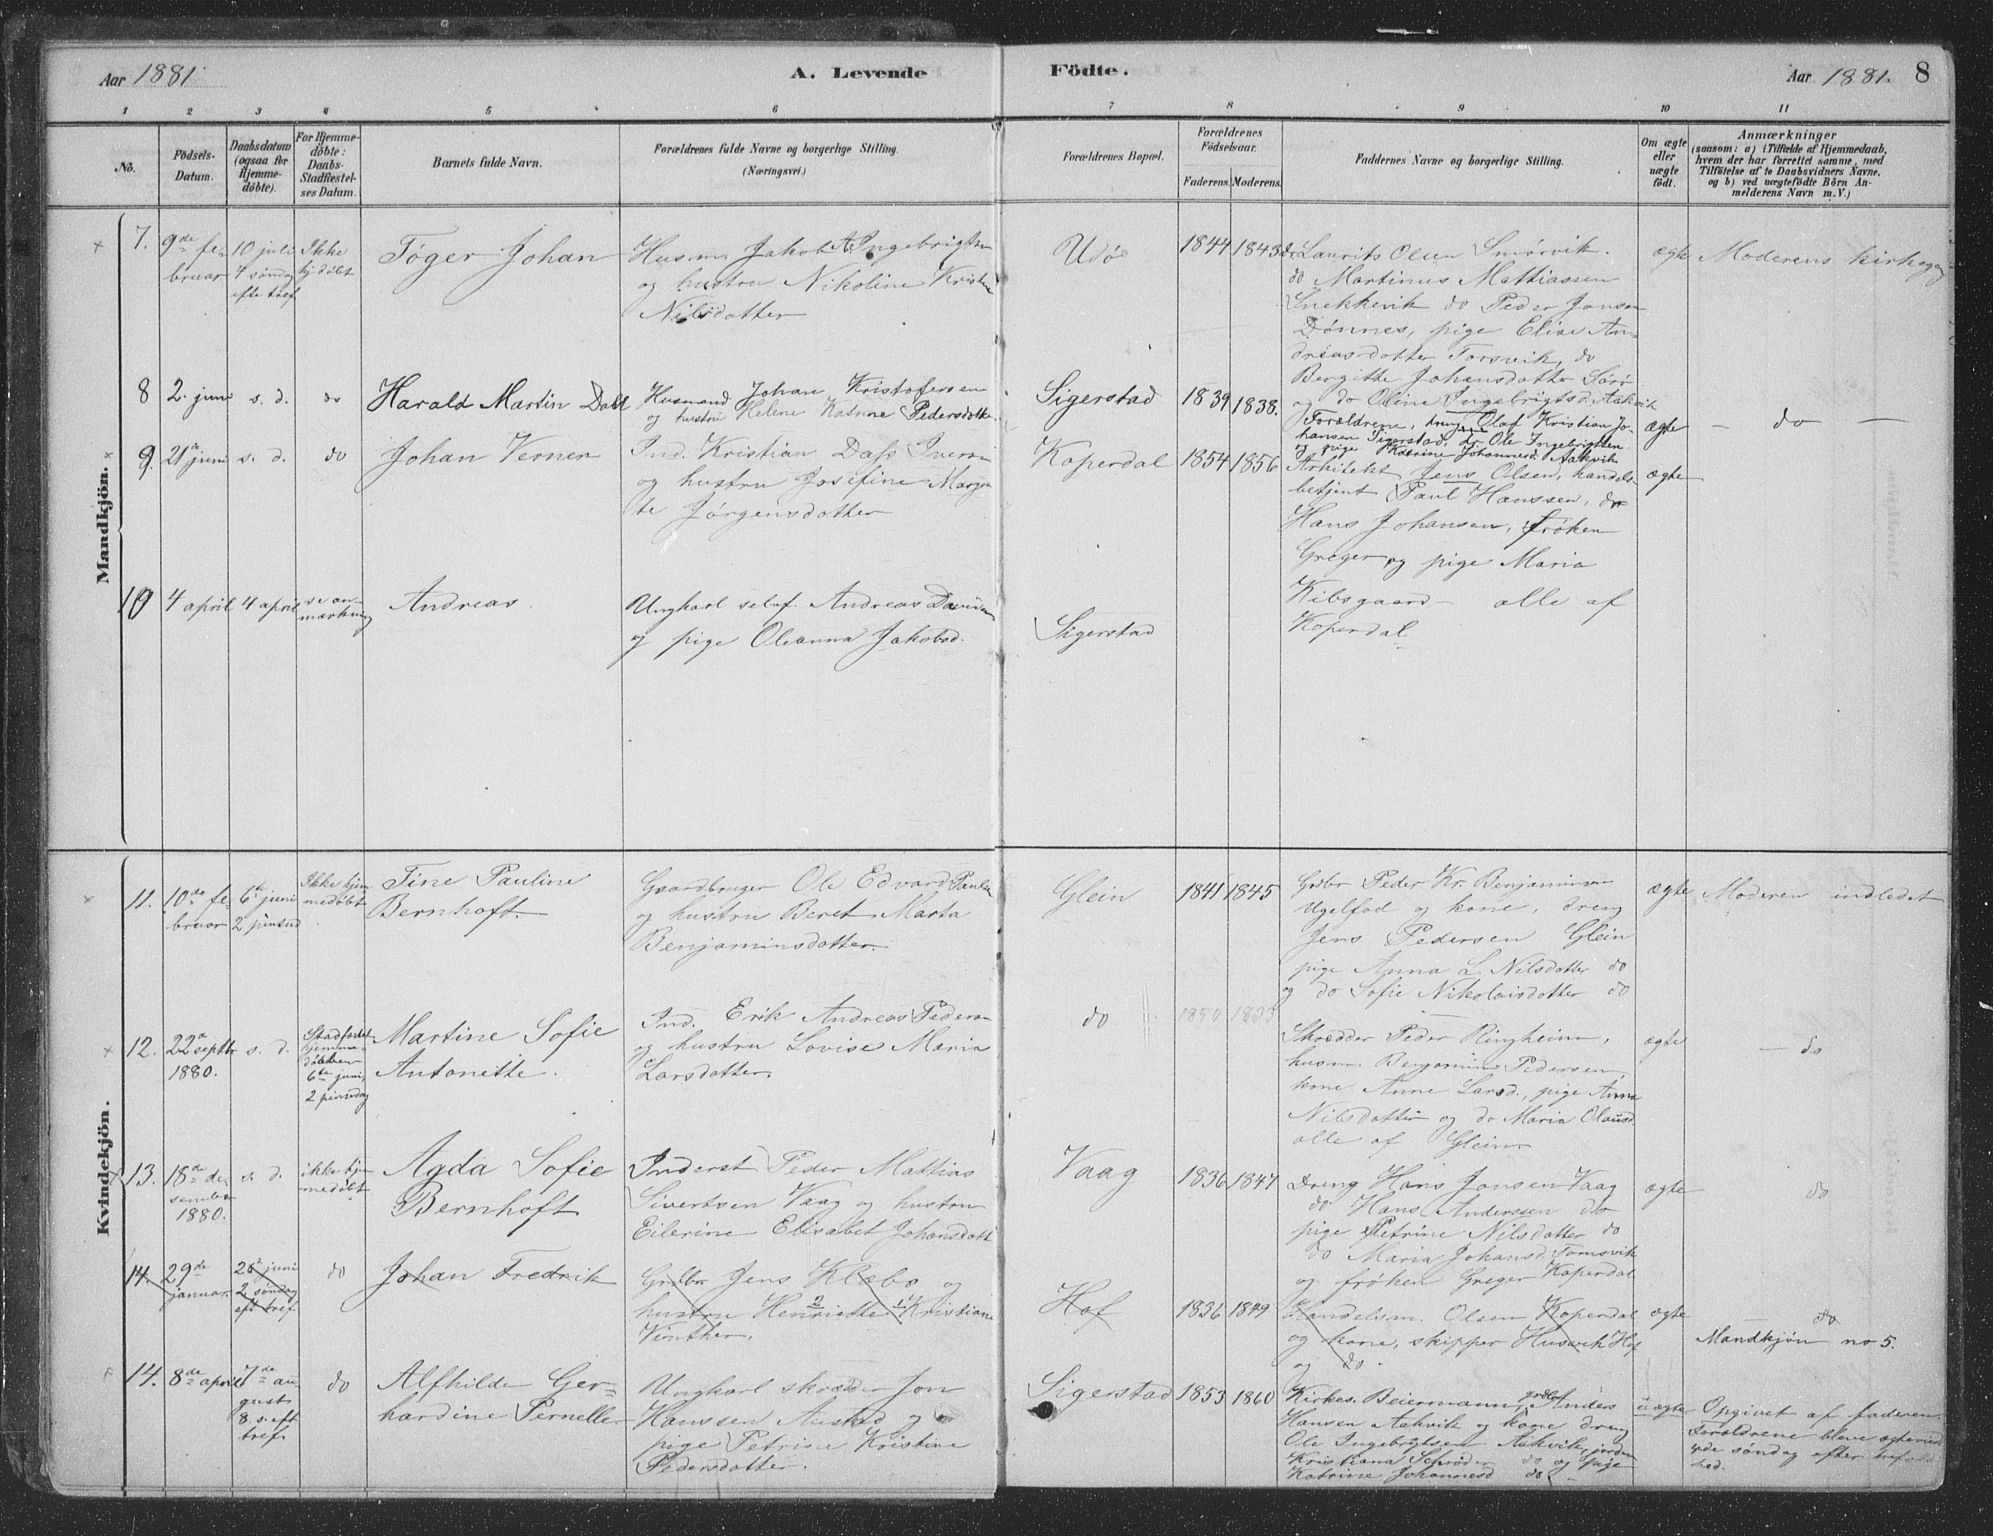 Aar 1881.
A. Levende
1 2 3 4 5 6
No.
Födsels-
Datum.
Daabsdatum
(ogsaa for
Hjemme-
døbte).
For Hjemme-
døbte:
Daabs-
Stadfæstel-
ses Datum.
Barnets fulde Navn.
Forældrenes fulde Navne og borgerlige Stilling.
(Næringsvei.)
Mandkjön.
7.
9de fe-
bruar
10 juli
4 søndag
efte tref
Ikke
hj døbt
Tøger Johan
Husm. Jakob A. Ingebrigtsen
og hustru Nikoline Kristine
Nilsdatter
8
2. juni
s. d.
do
Harald Martin Dahl
Husmand Johan Kristofersen
og hustru Helene Katrine Pedersdatter
9.
21 juni
s. d.
do
Johan Verner
Ind. Kristian Dass Iversen
og hustru Josefine Margre
te Jörgensdatter
10
4 april
4 april
se an-
mærkning
Andreas
Ungkarl selvf. Andreas Davidsen
og pige Oleanna Jakobsd.
Kvindekjön.
11.
10de fe-
bruar
6te juni
2 pintsed
Ikke hjem
medøbt
Tine Pauline
Bernhoft.
Gaardbruger Ole Edvard Paulsen
og hustru Beret Marta
Benjaminsdatter
12.
22 septbr
1880.
s. d.
Stadfæstet
hjemme-
døbt
6te juni,
2 pinsedag
Martine Sofie
Antonette.
Ind. Erik Andreas Pedersen
og hustru Lovise Maria
Larsdatter.
13.
18de de-
sember
1880.
s. d.
ikke hjem
medøbt
Agda Sofie
Bernhoft
Inderst Peder Mattias
Sivertsen Vaag og hustru
Eilerine Elisabet Johansdatt
14.
29de
januar.
26 juni
2 søndag
eft tref.
do
Johan Fredrik
Grdbr. Jens Klæbo og
hustru Henriette Kristiane
Vinther.
14.
8de april
7de au-
gust
8 s. eft
tref.
do
Alfhilde Ger-
hardine Pernelle
Ungkarl skrædder Jon
Hanssen Austad og
pige Petrine Kristine
Pedersdatter.
Födte.
Aar 1881. 8
7 8 9 10 11
Forældrenes Bopæl.
Forældrenes
Födselsaar.
Faderens. Moderens.
Faddernes Navne og borgerlige Stilling.
Om ægte
eller
uægte
födt.
Anmærkninger
(saasom: a) i Tilfælde af Hjemmedaab,
hvem der har forrettet samme, med
Tilföielse af to Daabsvidners Navne,
og b) ved uægtefödte Börn An-
melderens Navn m. V.)
Udö
1844 1843
Laurits Olsen Smörvik.
do Martinus Mattiassen
Snekkevik do Peder Jansen
Dönnes, pige Elise An-
dreasdatter Forsvik, do
Bergitte Johansdatter Sörö
og do Oline Ingebrigtsd. Aakvik
ægte
Moderens kirkegang
Sigerstad
1839 1838.
Forældrene, dreng Olaf Kristian Jo-
hansen Sigerstad, dr Ole Ingebrigtsen
og pige Katrine Johannesd. Aakvik
ægte
– do –
Koperdal
1854 1856
Arkitekt Jens Olsen, handels
betjent Paul Hanssen, do
Hans Johansen, fröken
Greger og pige Maria
Kibsgaard – alle af
Koperdal
ægte
Sigerstad
Glein
1841 1845
Grdbr Peder Kr. Benjaminsen
Ugelfad og kone, dreng
Jens Pedersen Glein
pige Anna L. Nilsdatter do
og do Sofie Nikolaisdatter do
ægte
Moderen indledet
do
1850 1853
Skrædder Peder Ringheim,
husm. Benjamin Pedersen,
kone Anne Larsd., pige Anna
Nilsdatter og do Maria Olausd.
alle af Glein.
ægte
– do
Vaag
1836 1847
Dreng Hans Jansen Vaag
do Hans Anderssen do
pige Petrine Nilsdatter do
do Maria Johansd. Tomsvik
og fröken Greger Koperdal
ægte
do
Hof
1836 1849
Handelsm. Olsen Koperdal
og kone, skipper Husvik Hof
og do.
ægte
– do
Mandkjön no 5.
Sigerstad
1853 1860
Kirkes. Beiermann, grdbr Anders
Hansen Aakvik og kone dreng
Ole Ingebrigtsen Aakvik, jordm
Kristiana Schrøder do og pige
Katrine Johannesd do –
uægte
Opgivet af faderen.
Forældrene bleve ægteviede
4de søndag efter trefoldig
hed.